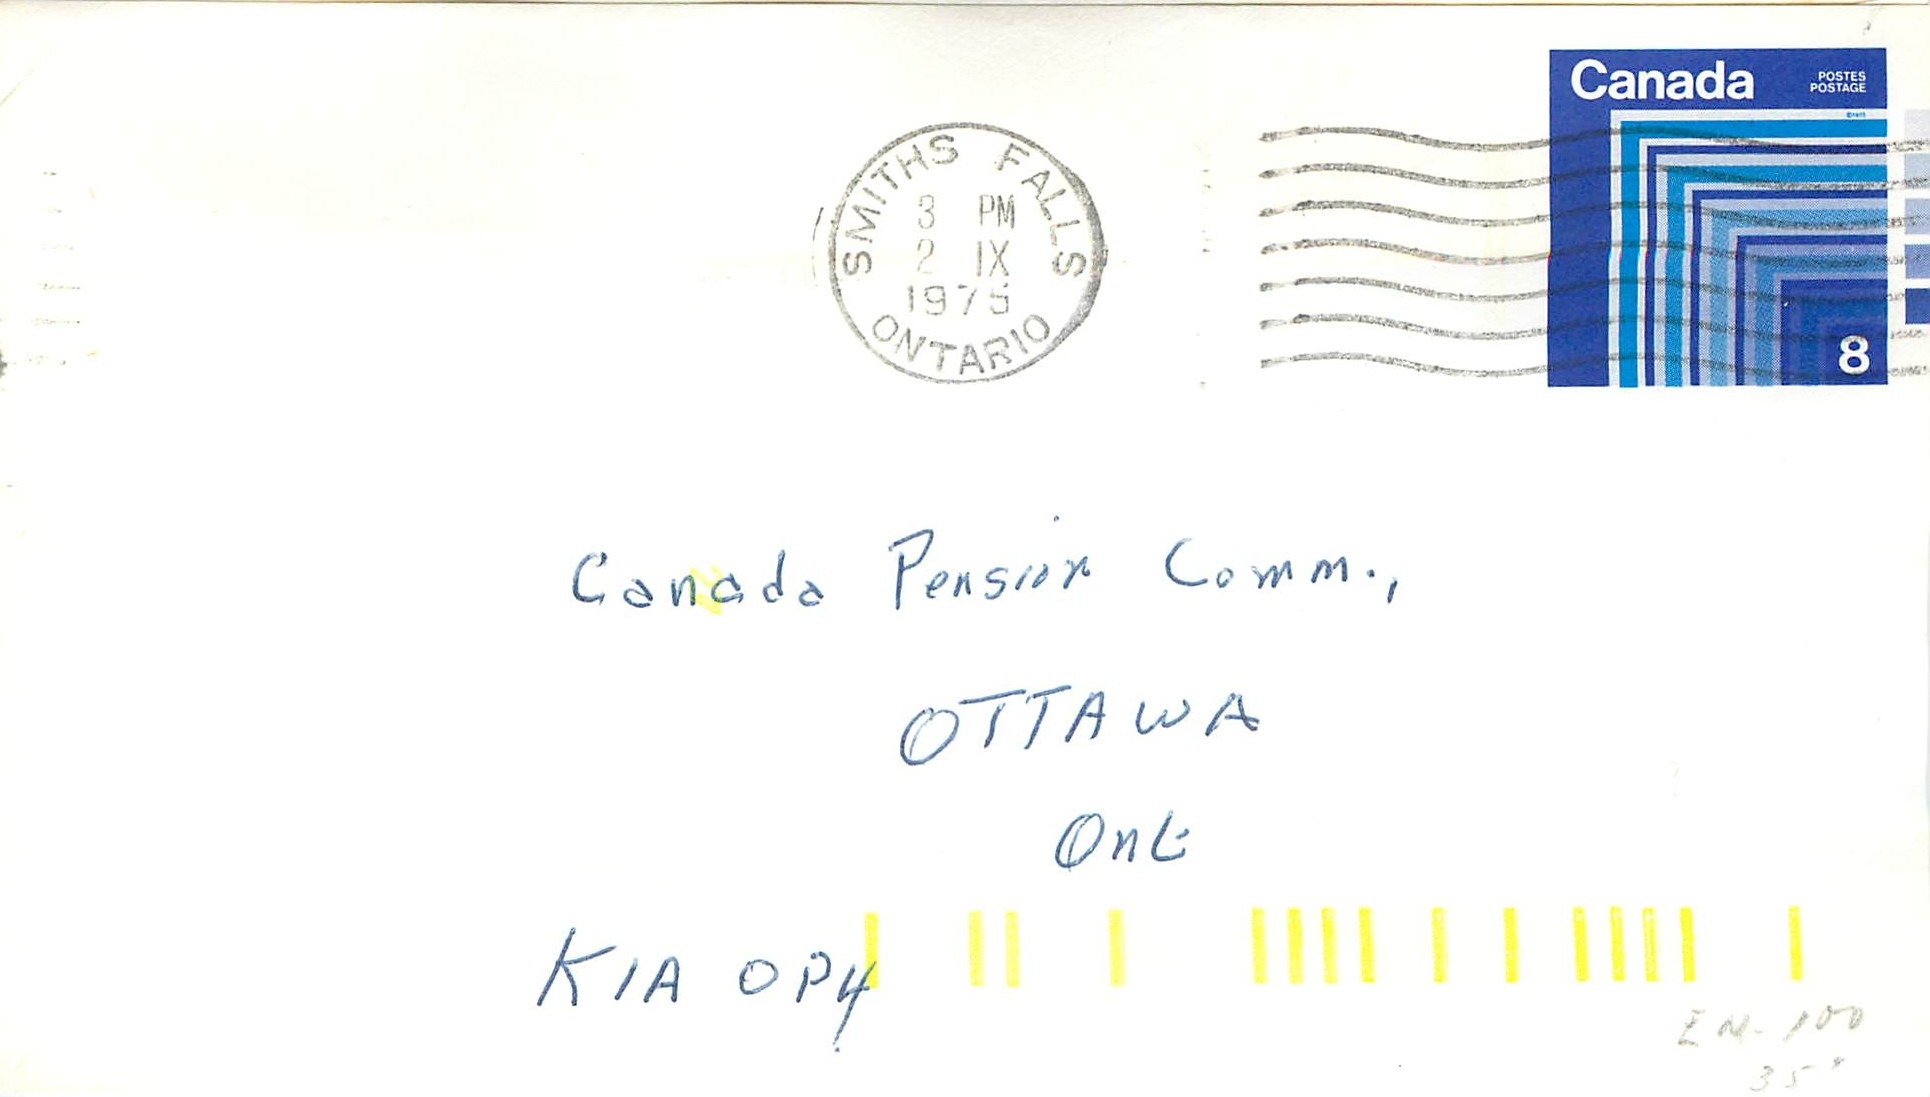 Canada POSTES
POSTAGE
SMITHS FALLS
3 PM
2 IX
1975
ONTARIO
8
Canada Pension Comm.,
OTTAWA
Ont
K1A 0P4
EN-100
35